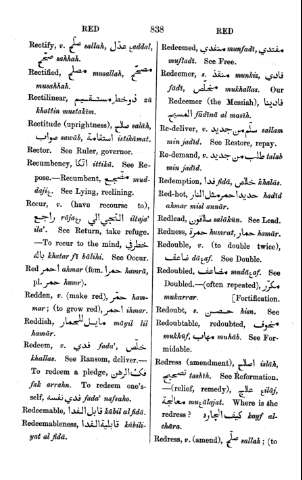 RED 838 RED
Rectify, v. عدّل ɛaddal,
صلّح sallah, صحّح sahhah.
Rectified, مصلّح musallah, مصحّح
musahhah.
Rectilinear, ذو خط مستقيم zū
khattin mustakīm.
Rectitude (uprightness), صلاح salāh,
صواب sawāb, استقامة istikāmat.
Rector. See Ruler, governor.
Recumbency, اتكا ittikā. See Re-
pose.—Recumbent, مضجع
See Lying, reclining.
Recur, v. (have recourse to),
راجع rājaɛ, التجى الى iltaja'
ila'. See Return, take refuge.
—To recur to the mind, خطر في
باله khatar fī bālihi. See Occur.
Red احمر ahmar (fem. حمرا hamrā,
pl. حمر hamr).
Redden, v. (make red), حمّر ham-
mar; (to grow red), احمر ihmar.
Reddish, مايل للحمار māyil lil
hamār.
Redeem, v. فدى fada', خلّص
khallas. See Ransom, deliver.—
To redeem a pledge, فك الرهن
fak arrahn. To redeem one's-
self, فدى نفسه fada' nafsaho.
Redeemable, قابل الفدا kābil al fidā.
Redeemableness, قابلية الفدا kābili-
yat al fidā.
Redeemed, مفتدي, منفدي munfadi,
muftadi. See Free.
Redeemer, s. منقذ munkis, فادي
fādī, مخلّص mukhallas. Our
Redeemer (the Messiah), فادينا
المسيح fādinā al masīh.
Re-deliver, v. سلّم من جديد sallam
min jadīd. See Restore, repay.
Re-demand, v. طلب من جديد talab
min jadīd.
Redemption, فدا fidā, خلاص khalās.
Red-hot, حديد احمر مثل النار hadīd
ahmar misl annār.
Redlead, سلاقون salākūn. See Lead.
Redness, حمرة humrat, حمار hamār.
Redouble, v. (to double twice),
ضاعف dāɛaf. See Double.
Redoubled, مضاعف mudāɛaf. See
Doubled.—(often repeated), مكرّر
mukarrar. [Fortification.
Redoubt, s. حصن hisn. See
Redoubtable, redoubted, مخوف
mukhūf, مهاب muhāb. See For-
midable.
Redress (amendment), اصلاح islāh,
تصحيح tashīh. See Reformation.
—(relief, remedy), علاج ɛilāj,
معالجة muɛālajat. Where is the
redress? كيف الچاره kayf al-
chāra.
Redress, v. (amend), صلّح sallah; (to